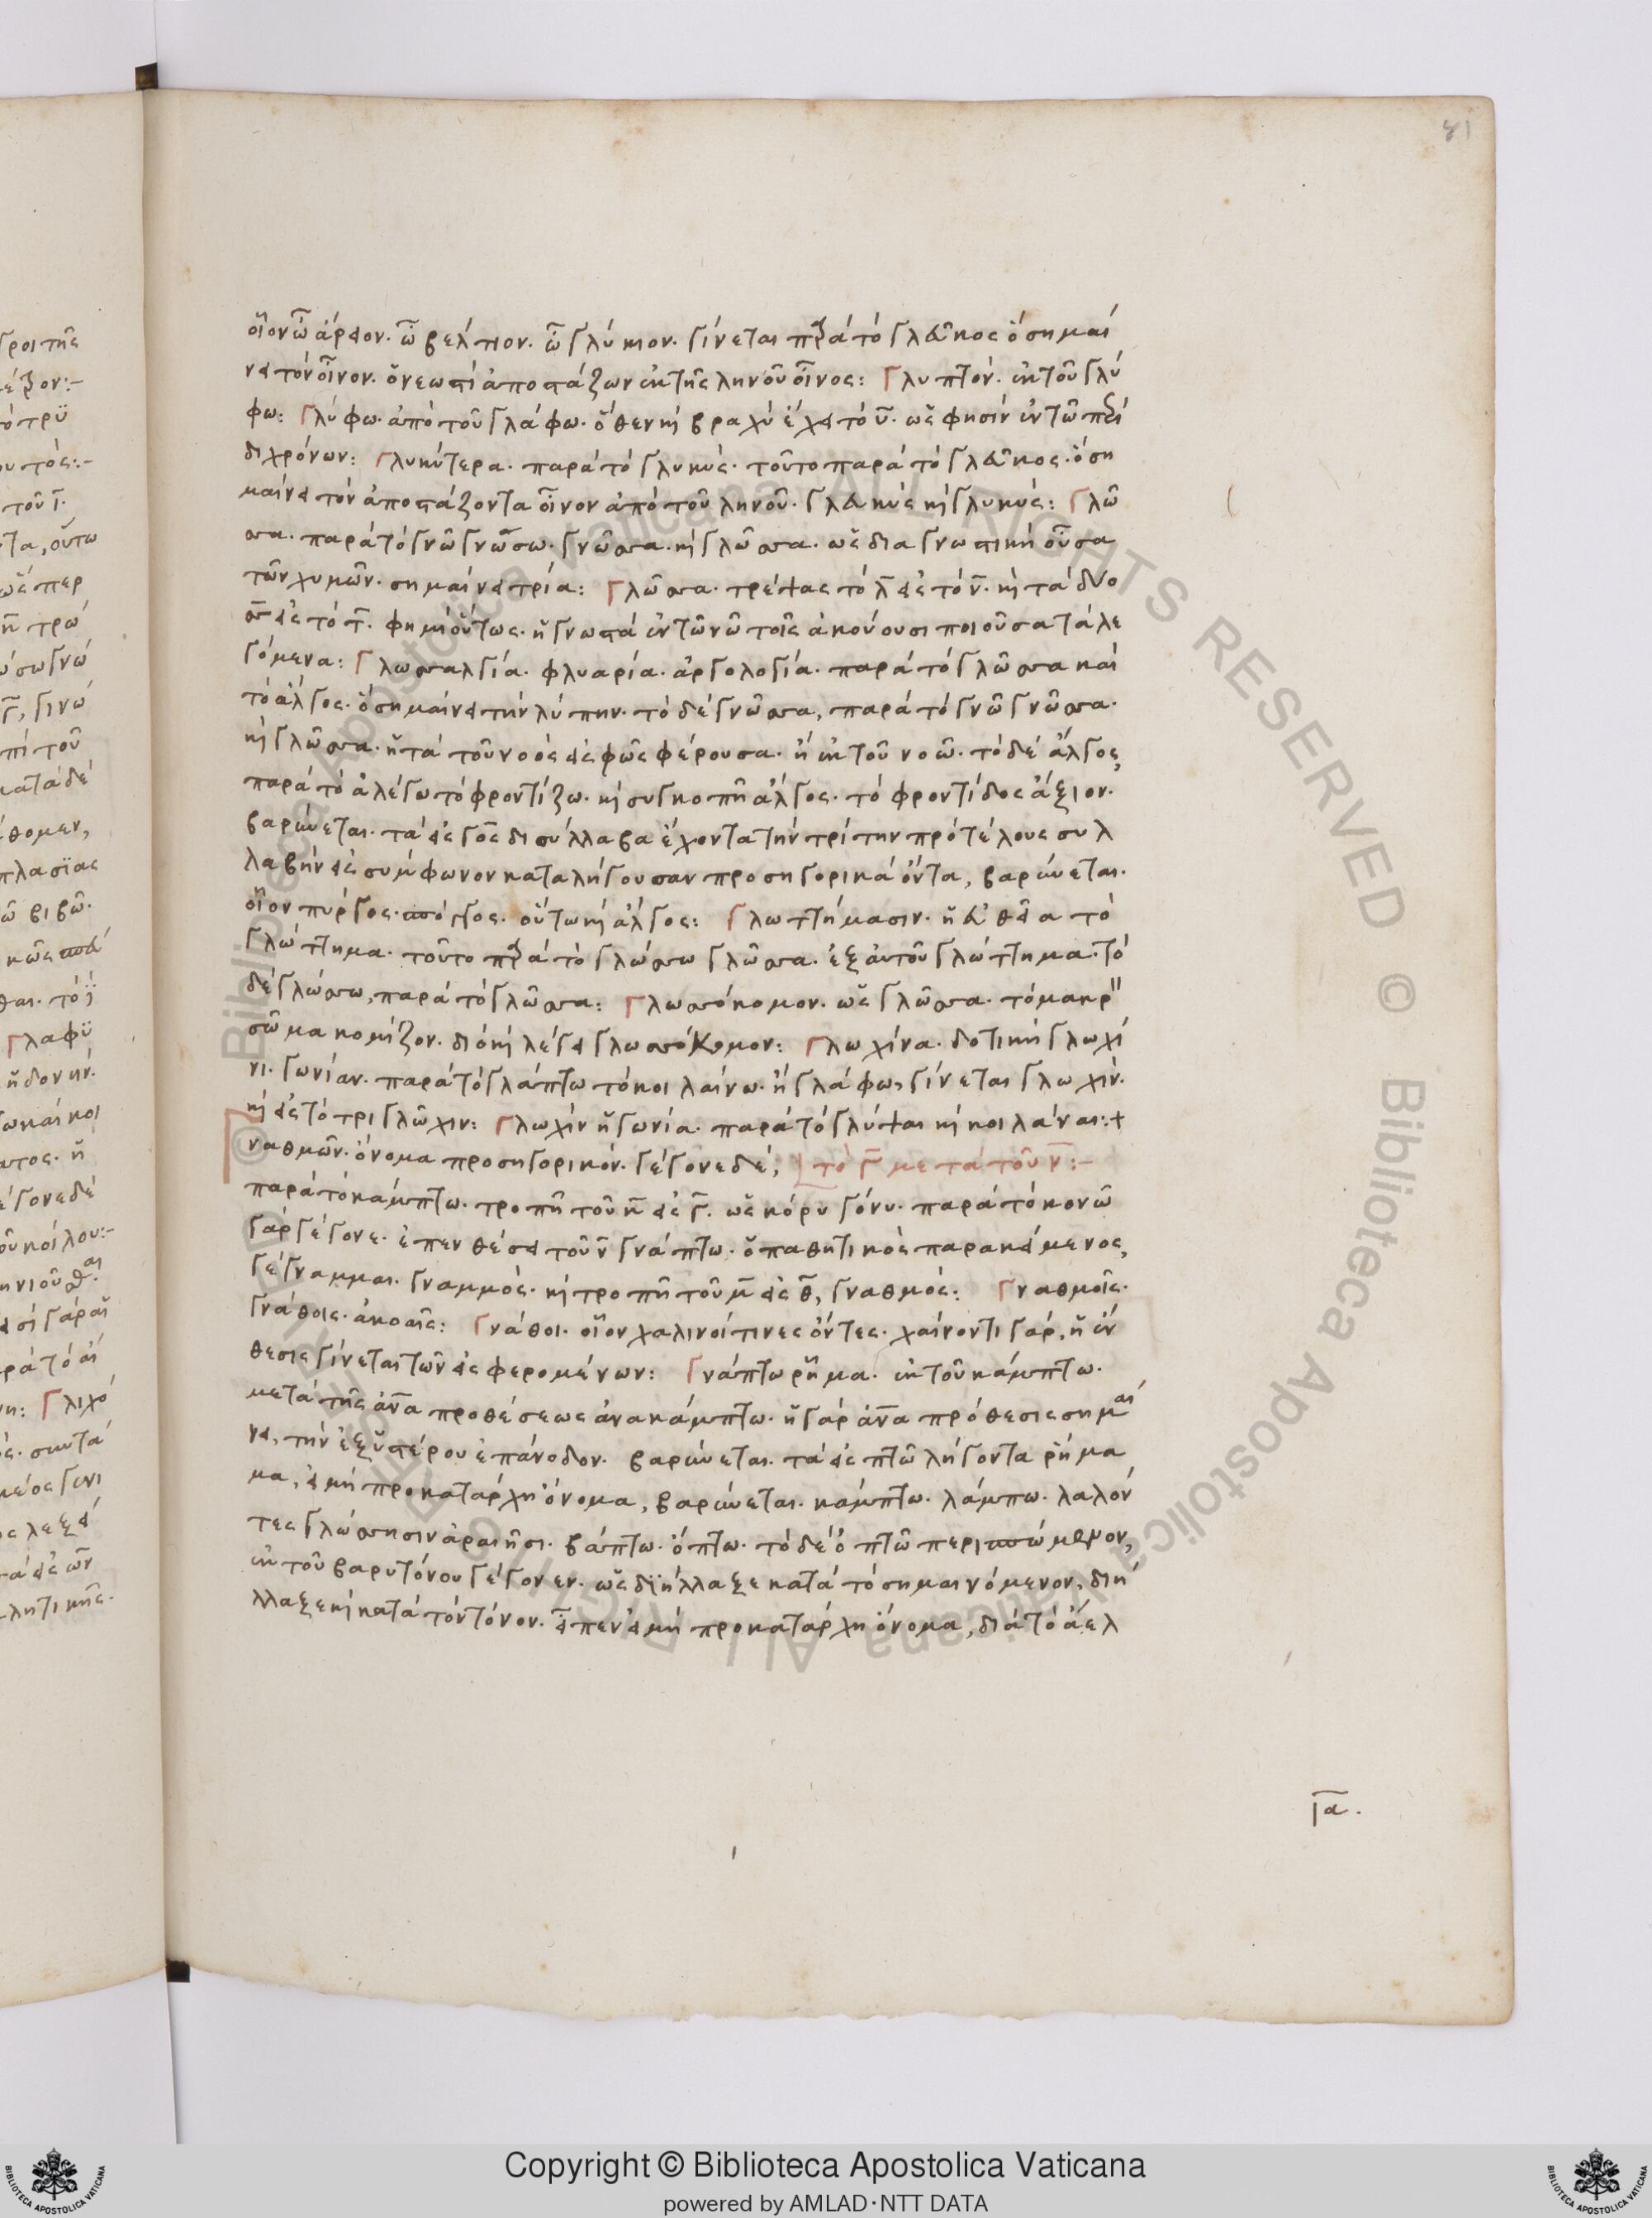 81
οἷον ὦ ἄρειον. ὦ βέλτιον. ὦ γλύκιον. γίνεται παρὰ τὸ γλεῦκος ὃ σημαί
νει τὸν οἶνον. ὅν ἐωστί ἀποστάζων ἐκ τῆς ληνοῦ οἶνος: Γλυπτόν. ἐκ τοῦ γλύ
φω: Γλύφω. ἀπὸ τοῦ γλάφω. ὅθεν καὶ βραχὺ ἔχει τὸ υ. ὥς φησιν ἐν τῷ περὶ
διχρόνων: Γλυκύτερα. παρὰ τὸ γλυκύς. τοῦτο παρὰ τὸ γλεῦκος. ὃ ση
μαίνει τὸν ἀποστάζοντα οἶνον ἀπὸ τοῦ ληνοῦ. γλευκύς καὶ γλυκύς: Γλῶ
σσα. παρὰ τὸ γνῶ γνώσω. γνῶσσα. καὶ γλῶσσα. ὡς διαγνωστικὴ οὖσα
τῶν χυμῶν. σημαίνει τρία: Γλῶσσα. τρέψας τὸ λ εἰς τὸ ν. καὶ τὰ δύο
σσ εἰς τὸ τ. φημὶ οὕτως. ἡ γνωστὰ ἐν τῷ νῷ τοῖς ἀκούουσι ποιοῦσα τὰ λε
γόμενα: Γλωσσαλγία. φλυαρία. ἀργολογία. παρὰ τὸ γλῶσσα καὶ
τὸ ἄλγος. ὃ σημαίνει τὴν λύπην. τὸ δὲ γνῶσσα, παρὰ τὸ γνῶ γνῶσσα.
καὶ γλῶσσα. ἡ τὰ τοῦ νοὸς εἰς φῶς φέρουσα. ἢ ἐκ τοῦ νοῶ. τὸ δὲ ἄλγος,
παρὰ τὸ ἀλέγω τὸ φροντίζω. καὶ συγκοπῇ ἄλγος. τὸ φροντίδος ἄξιον.
βαρύνεται. τὰ εἰς γος δισύλλαβα ἔχοντα τὴν τρίτην πρὸ τέλους συλ
λαβὴν εἰς σύμφωνον καταλήγουσαν προσηγορικὰ ὄντα, βαρύνεται.
οἷον πύργος. σπόγγος. οὕτω καὶ ἄλγος: Γλωττήμασιν. ἡ εὐθεῖα τὸ
γλώττημα. τοῦτο παρὰ τὸ γλώσσω γλῶσσα. ἐξ αὐτοῦ γλώττημα. τὸ
δὲ γλώσσω, παρὰ τὸ γλῶσσα: Γλωσσόκομον. ὡς γλῶσσα. τὸ μακρ
σῶμα κομίζον. διὸ καὶ λέγει γλωσσόκομον: Γλωχίνα. δοτικὴ γλωχί
νι. γωνίαν. παρὰ τὸ γλάπτω τὸ κοιλαίνω. ἢ γλάφω, γίνεται γλωχίν.
καὶ εἰς τὸ τριγλῶχιν: Γλωχὶν ἡ γωνία. παρὰ τὸ γλύψαι καὶ κοιλᾶναι:+
Γναθμῶν. ὄνομα προσηγορικόν. γέγονε δέ, τὸ γ μετὰ τοῦ ν:-
παρὰ τὸ κάμπτω. τροπῇ τοῦ κ εἰς γ. ὡς κόρυ γόνυ. παρὰ τὸ κονῶ
γὰρ γέγονε. ἐπενθέσει τοῦ ν γνάπτω. ὁ παθητικὸς παρακείμενος,
γέγναμμαι. γναμμός. καὶ τροπῇ τοῦ μ εἰς θ, γναθμός: Γναθμοῖς.
γνάθοις. ἀκοαῖς: Γνάθοι. οἷον χαλινοί τινες ὄντες. χαίνοντι γάρ, ἡ ἔν
θεσις γίνεται τῶν εἰσφερομένων: Γνάπτω ῥῆμα. ἐκ τοῦ κάμπτω.
μετὰ τῆς ἀνα προθέσεως ἀνακάμπτω. ἡ γὰρ ἀνα πρόθεσις σημαί
νει, τὴν ἐξ ὑστέρου ἐπάνοδον. βαρύνεται. τὰ εἰς πτω λήγοντα ῥήμα
μα, εἰ μὴ προκατάρχῃ ὄνομα, βαρύνεται. κάμπτω. λάμπω. λαλόν
τες γλώσσῃσιν ἀραιῇσι. βάπτω. ὄπτω. τὸ δὲ ὀπτῶ περισπώμενον,
ἐκ τοῦ βαρυτόνου γέγονεν. ὡς διήλλαξε κατὰ τὸ σημαινόμενον, διή
λλαξε καὶ κατὰ τὸν τόνον. εἶπεν εἰ μὴ προκατάρχῃ ὄνομα, διὰ τὸ ἀελ
ια.
Copyright © Biblioteca Apostolica Vaticana
powered by AMLAD·NTT DATA